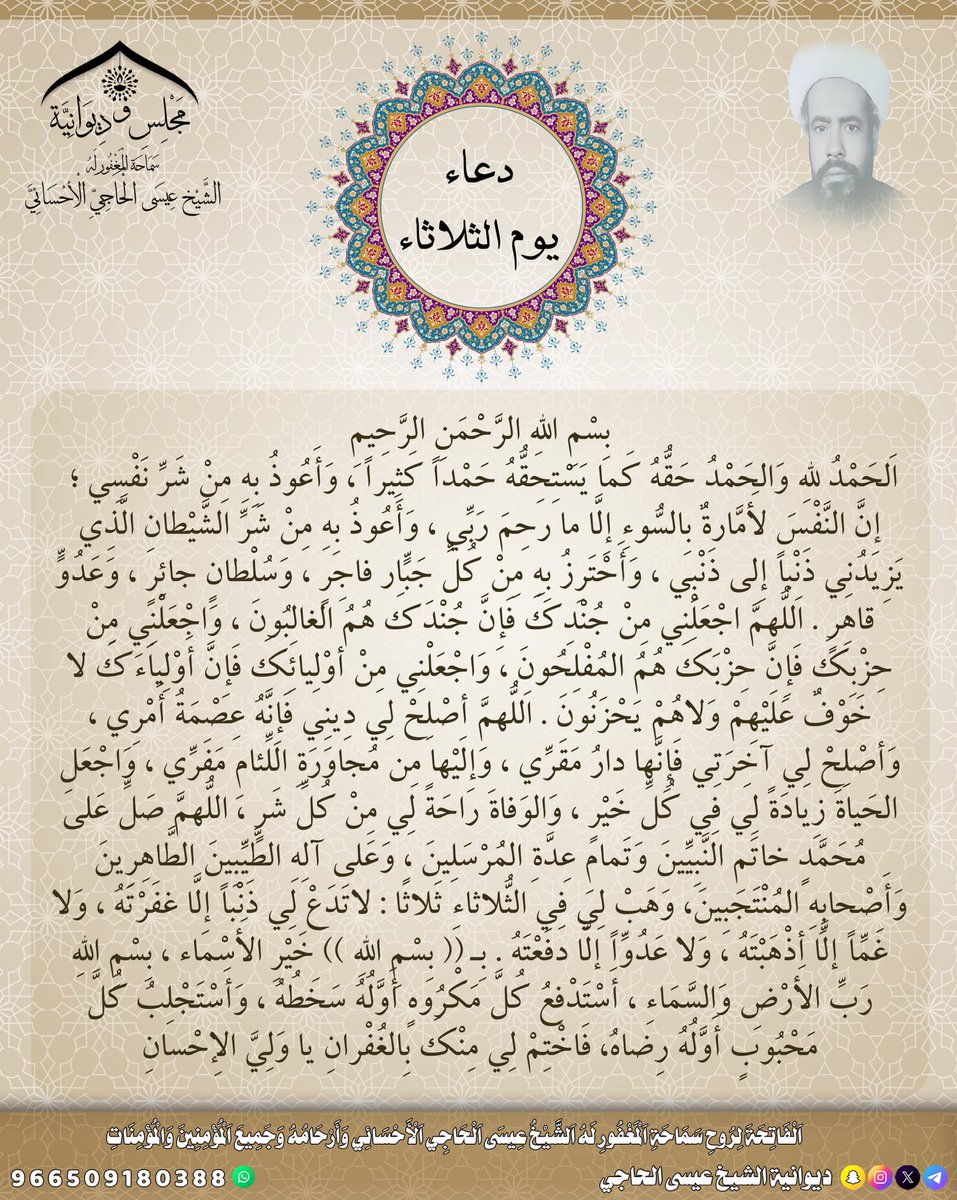 مَجْلِس وَدِيوَانِيَّة
سَمَاحَة المَغْفُور لَهُ
الشَّيْخ عِيسَى الْحَاجِيّ الْأَحْسَائِيّ
دعاء
يوم الثلاثاء
بِسْمِ اللهِ الرَّحْمَنِ الرَّحِيمِ
اَلحَمْدُ للهِ وَالحَمْدُ حَقُّهُ كَما يَسْتِحِقُّهُ حَمْداً كَثِيراً ، وَأَعُوذُ بِهِ مِنْ شَرِّ نَفْسِي ؛
إنَّ النَّفْسَ لأمَّارةٌ بالسُّوءِ إلَّا ما رحِمَ رَبِّي ، وَأَعُوذُ بِهِ مِنْ شَرِّ الشَّيْطانِ الَّذي
يَزِيدُنِي ذَنْباً إلى ذَنْبِي ، وَأَحْتَرِزُ بِهِ مِنْ كُلِّ جَبَّارٍ فاجِرٍ ، وَسُلْطانٍ جائِرٍ ، وَعَدُوٍّ
قاهِرٍ . اللَّهمَّ اجْعَلْنِي مِنْ جُنْدِكَ فَإنَّ جُنْدَكَ هُمُ الغالبُونَ ، وَاجْعَلْنِي مِنْ
حِزْبِكَ فَإنَّ حِزْبَكَ هُمُ المُفْلِحُونَ ، وَاجْعَلْنِي مِنْ أوْلِيائِكَ فَإنَّ أوْلِياءَكَ لا
خَوْفٌ عَلَيْهِمْ وَلاهُمْ يَحْزَنُونَ . اَللَّهمَّ أصْلِحْ لِي دِيني فَإنَّهُ عِصْمَةُ أمْرِي ،
وَأصْلِحْ لِي آخِرَتِي فَإنَّها دارُ مَقَرِّي ، وَإلَيْها مِن مُجاوَرَةِ اللِّئامِ مَفَرِّي ، وَاجْعَلِ
الحَياةَ زِيادَةً لِي فِي كُلِّ خَيْرٍ ، وَالوَفاةَ رَاحَةً لِي مِنْ كُلِّ شَرٍ ، اللَّهمَّ صَلِّ عَلى
مُحَمَّدٍ خاتَمِ النَّبيِّينَ وَتَمامِ عِدَّةِ المُرْسَلِينَ ، وَعَلى آلِهِ الطَّيِّبينَ الطَّاهِرِينَ
وَأَصْحابِهِ المُنْتَجَبِينَ، وَهَبْ لِيَ فِي الثُّلاثاءِ ثَلاثًا : لاتَدَعْ لِي ذَنْبَاً إلَّا غفَرْتَهُ ، وَلا
غَمَّاً إلَّا أذْهَبْتَهُ ، وَلا عَدُوَّاً إلَّا دفَعْتَهُ . بِـ (( بِسْمِ الله )) خَيْرِ الأسْمِاء ، بِسْمِ اللهِ
رَبِّ الأرْضِ وَالسَّمَاءِ ، أسْتَدْفعُ كُلَّ مَكْرُوهٍ أَوَّلُهُ سَخَطُهُ ، وَأسْتَجْلِبُ كُلَّ
مَحْبُوبٍ أَوَّلُهُ رِضَاهُ، فَاخْتِمْ لِي مِنْكَ بِالغُفْرانِ يا وَلِيَّ الإحْسانِ
اَلْفَاتِحَةَ لِرُوحِ سَمَاحَةِ اَلْمَغْفُورِ لَهُ اَلشَّيْخُ عِيسَى اَلْحَاجِي اَلْأَحْسَائِي وَأَرْحَامُهُ وَجَمِيعَ اَلْمُؤْمِنِينَ وَالْمُؤْمِنَاتِ
ديوانية الشيخ عيسى الحاجي
966509180388